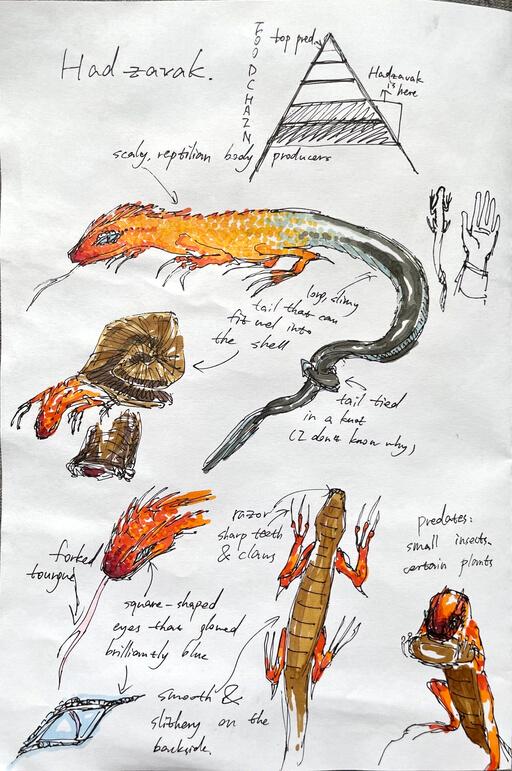 Hadzavak.
FOODCHAZN
top pred.
Hadzavak
is
here
producers
scaly, reptilian body
long, slimy
tail that can
fit wel into
the shell
tail tied
in a knot
(I don't know why)
forked
tourgue
razor
sharp teeth
& claws
predates:
small insects.
certain plants
square-shaped
eyes that glowed
brilliantly blue
smooth &
slithery on the
backside.